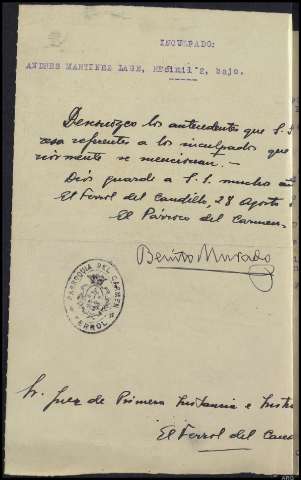 INCULPADO:
ANDRES MARTINEZ LAGE, 2, bajo.
Desconozco los antecedentes que S.S.
resa referentes a los inculpados que
riormente se mencionan.-
Dios guarde a S.S. mucho añ
El Ferrol del Caudillo, 28 Agosto
El Párroco del Carmen-
Benito Murado
PARROQUIA DEL CARMEN
FERROL
Sr. Juez de Primera Instancia e Instru
El Ferrol del Caud
ARG